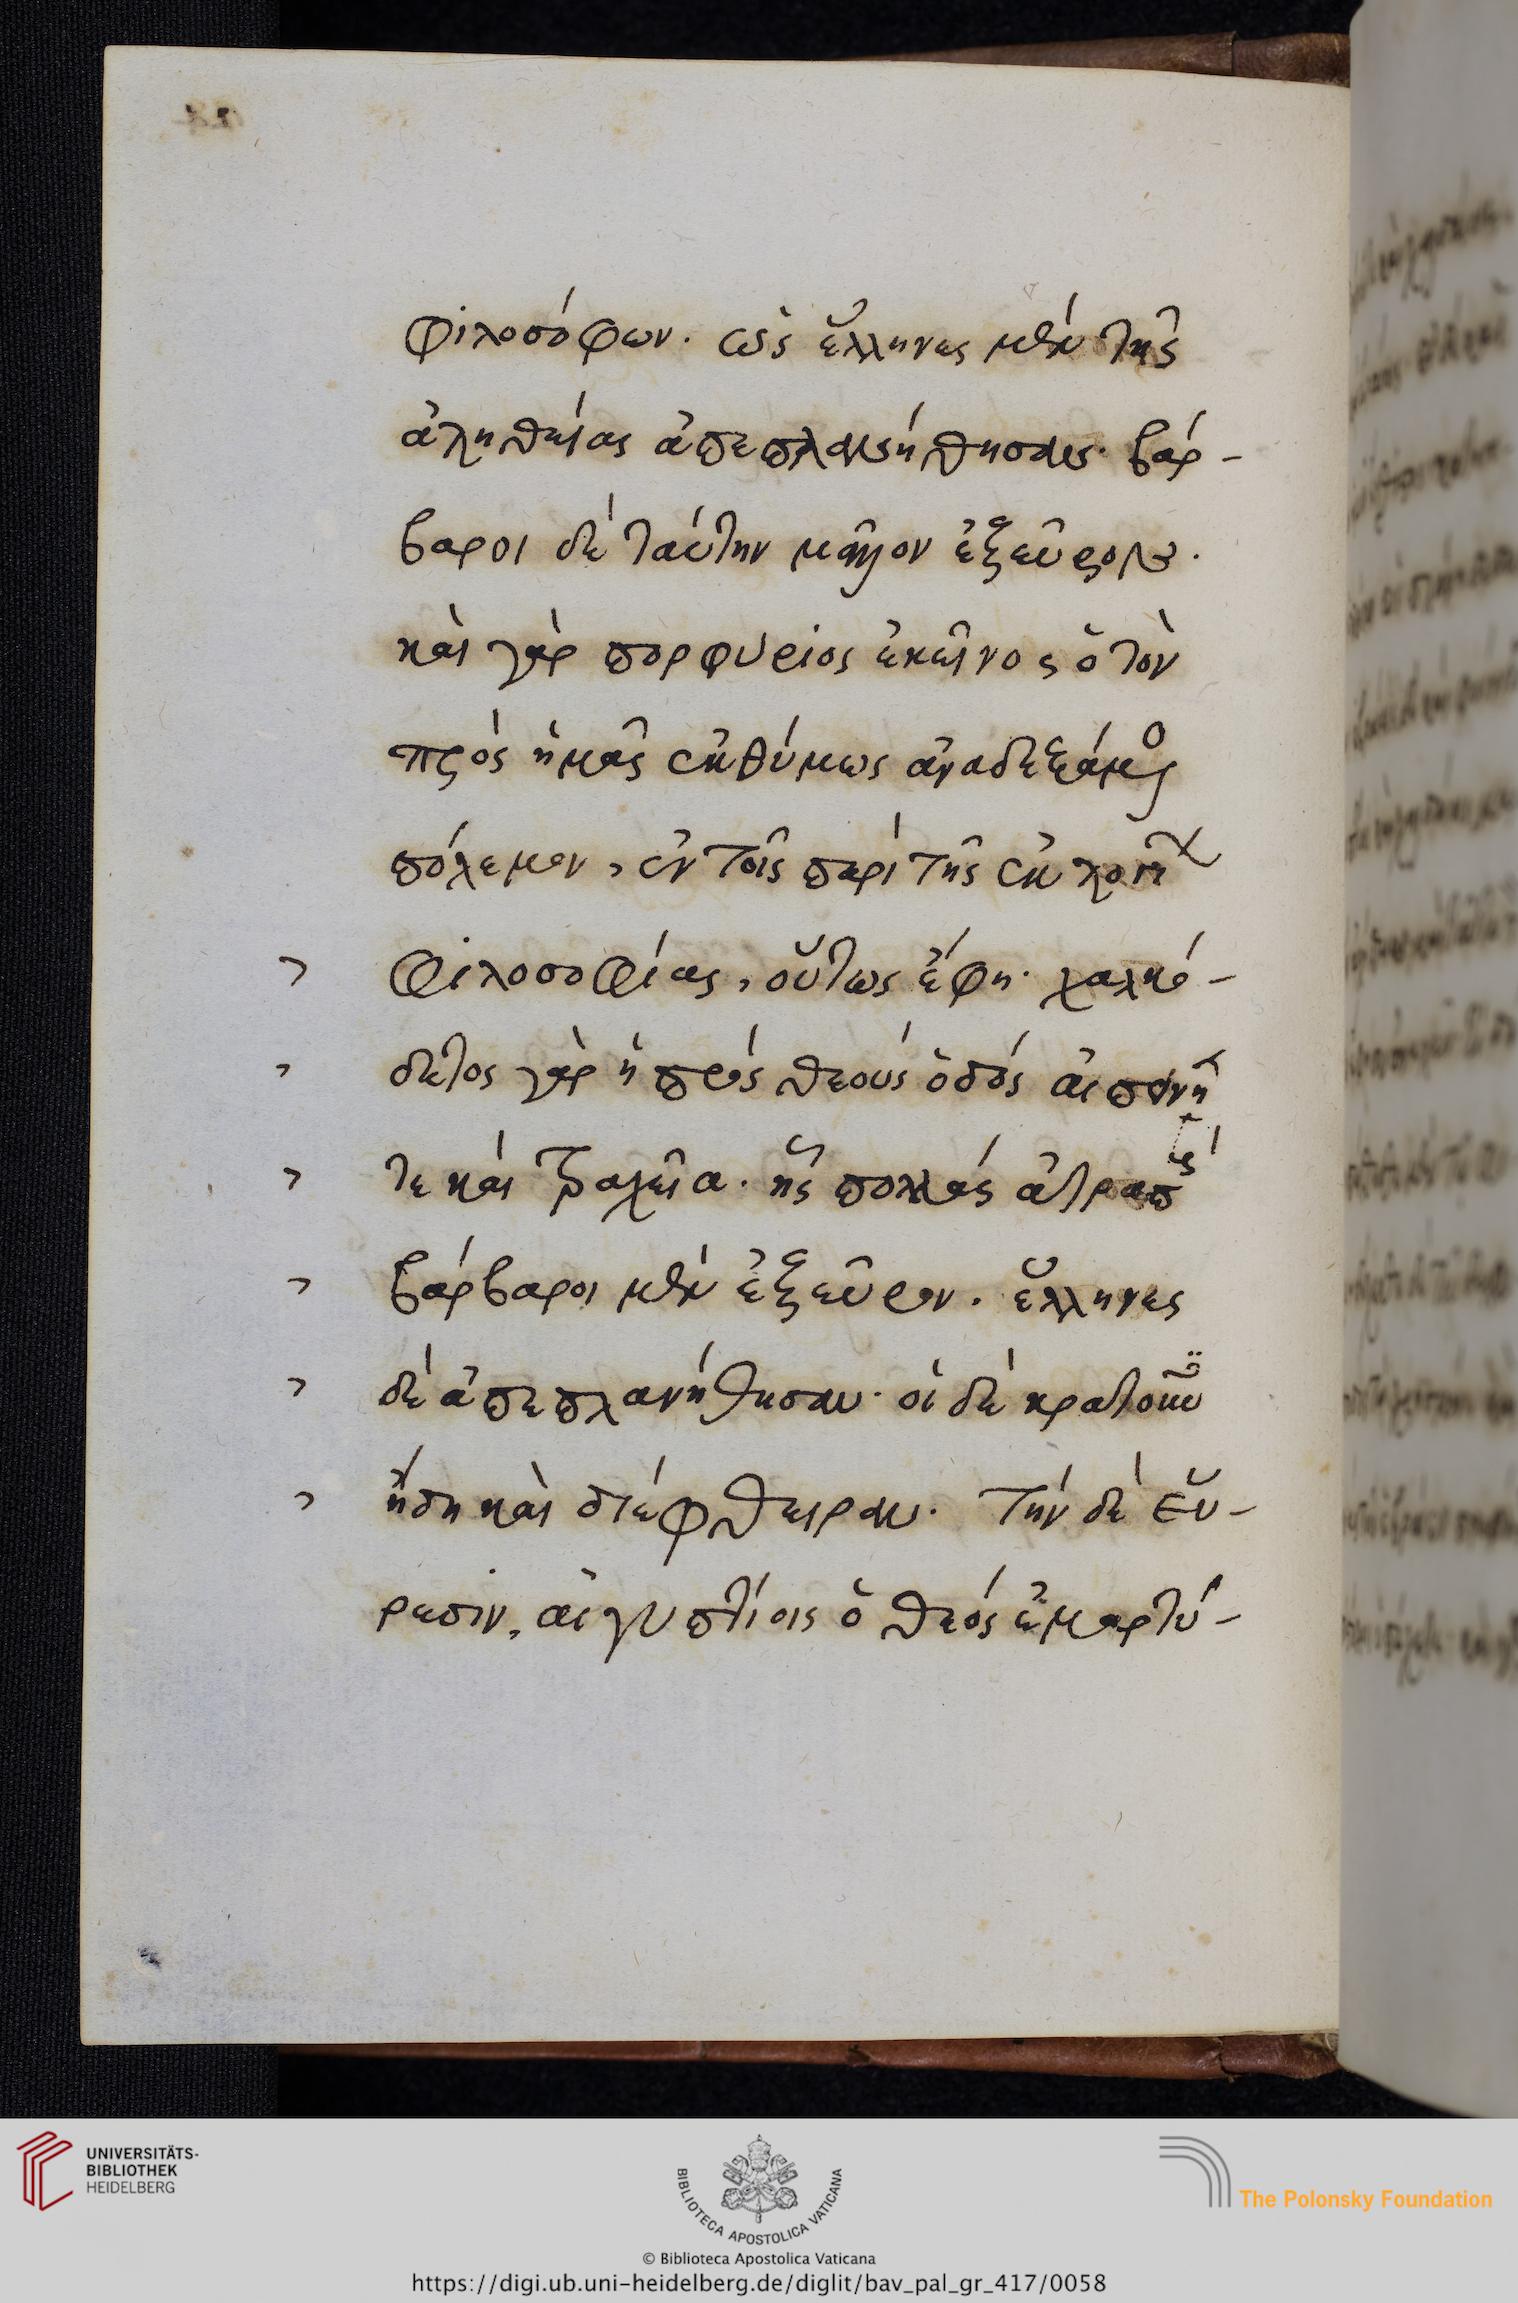 φιλοσόφων. ὡς ἕλληνες μὲν τῆς
ἀληθείας ἀπεπλανήθησαν· βάρ-
βαροι δὲ ταύτην μᾶλλον ἐξεῦρον.
καὶ γὰρ πορφύριος ἐκεῖνος ὁ τὸν
πρὸς ἡμᾶς ἐκθύμως ἀναδεξάμενος
πόλεμον, ἐν τοῖς περὶ τῆς ἐκ λογίων
φιλοσοφίας, οὕτως ἔφη· χαλκό-
δετος γὰρ ἡ πρὸς θεοὺς ὁδός αἰπεινή
τε καὶ τραχεῖα. ἧς πολλὰς ἀτραποὺς
βάρβαροι μὲν ἐξεῦρον. ἕλληνες
δὲ ἀπεπλανήθησαν· οἱ δὲ κρατοῦντες
ἤδη καὶ διέφθειραν. τὴν δὲ εὕ-
ρεσιν, αἰγυπτίοις ὁ θεὸς ἐμαρτύ-
UNIVERSITÄTS-
BIBLIOTHEK
HEIDELBERG
BIBLIOTECA APOSTOLICA VATICANA
The Polonsky Foundation
© Biblioteca Apostolica Vaticana
https://digi.ub.uni-heidelberg.de/diglit/bav_pal_gr_417/0058